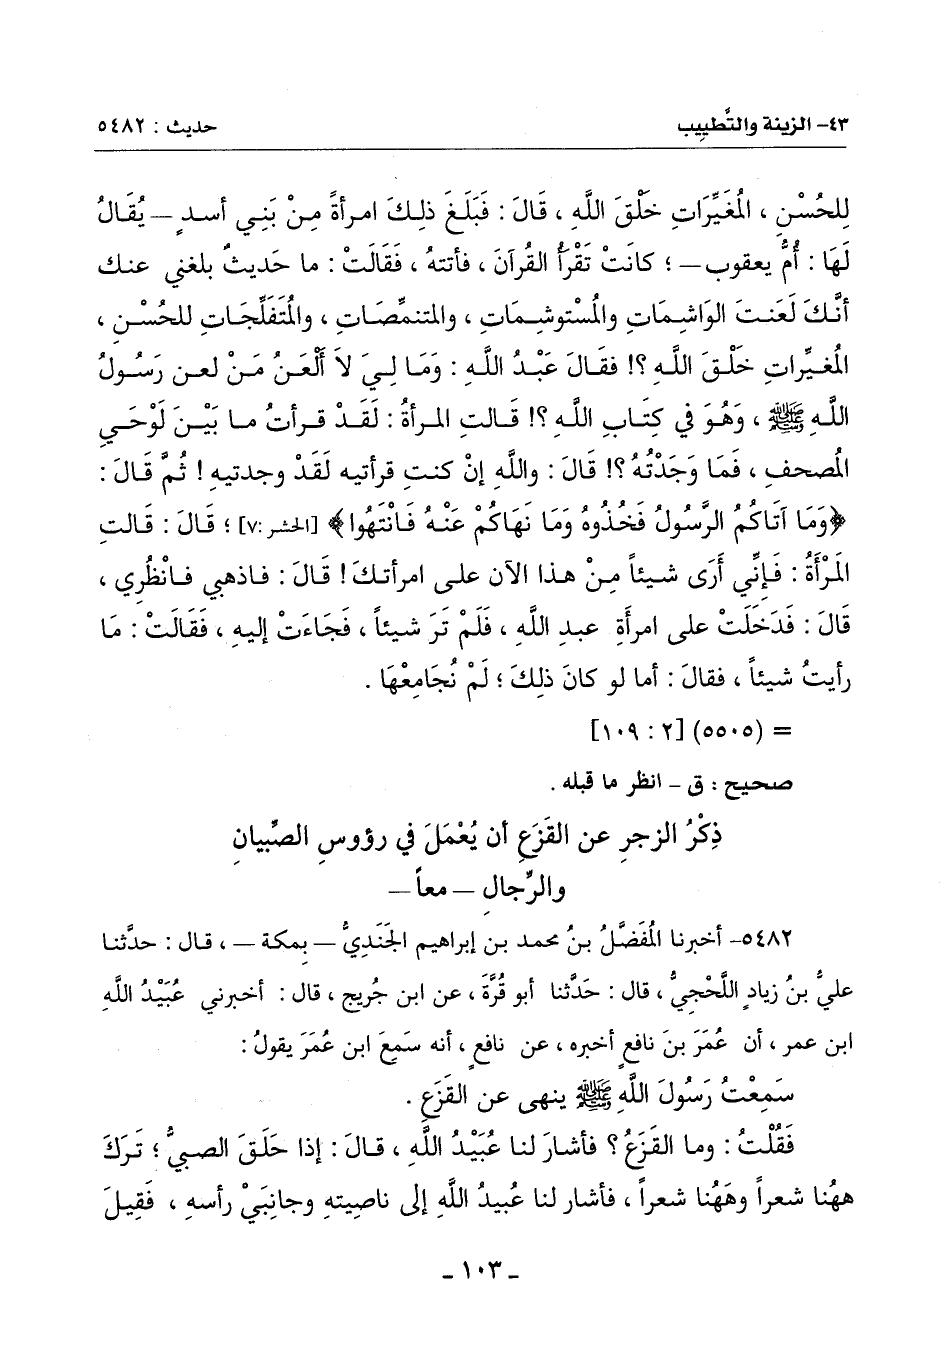 ٤٣- الزينة والتَّطييب حديث : ٥٤٨٢
لِلحُسْنِ ، المُغيِّرَاتِ خَلْقَ اللَّهِ ، قَالَ : فَبَلَغَ ذلِكَ امرأةً مِنْ بَنِي أسدٍ — يُقَالُ
لَهَا : أُمُّ يعقوب — ؛ كانَتْ تَقْرَأُ القُرآنَ ، فأتتهُ ، فقَالَتْ : ما حَديثٌ بلغني عنك
أنَّكَ لَعَنتَ الوَاشِماتِ والمُسْتوشِماتِ ، والمتنمِّصَاتِ ، والمُتَفَلِّجَاتِ للحُسْنِ ،
المُغيِّراتِ خَلْقَ اللَّهِ ؟! فقَالَ عَبْدُ اللَّهِ : وَمَا لِيَ لاَ أَلْعَنُ مَنْ لعن رَسُولُ
اللَّهِ ﷺ ، وَهُوَ فِي كِتَابِ اللَّهِ ؟! قَالتِ المرأةُ : لَقَدْ قرأتُ ما بَيْنَ لَوْحَيِ
المُصحفِ ، فَمَا وَجَدْتُهُ ؟! قَالَ : واللَّهِ إنْ كنتِ قرأتيه لَقَدْ وجدتيهِ ! ثُمَّ قَالَ :
﴿وَمَا آتَاكُمُ الرَّسُولُ فَخُذُوهُ وَمَا نَهَاكُمْ عَنْهُ فَانْتَهُوا﴾ [الحشر :٧] ؛ قَالَ : قَالتِ
المَرْأَةُ : فَإنِّي أَرَى شيئاً مِنْ هذا الآن على امرأتكَ ! قَالَ : فاذهبي فانْظُرِي ،
قَالَ : فَدَخَلَتْ على امرأةِ عبدِ اللَّهِ ، فَلَمْ تَرَ شيئاً ، فَجَاءَتْ إليهِ ، فَقَالَتْ : مَا
رأيتُ شيئاً ، فقالَ : أما لو كانَ ذلِكَ ؛ لَمْ نُجَامِعْهَا .
= (٥٥٠٥) [٢ : ١٠٩]
صحيح : ق - انظر ما قبله .
ذِكْرُ الزجرِ عن القَزَعِ أن يُعْمَلَ فِي رؤوسِ الصِّبيانِ
والرِّجال — معاً —
٥٤٨٢- أخبرنا المُفَضَّلُ بنُ محمد بن إبراهيم الجَنَدِيُّ — بمكة — ، قال : حدَّثنا
عليُّ بنُ زيادٍ اللَّحْجِيُّ ، قال : حَدَّثنا أبو قُرَّةَ ، عن ابن جُريج ، قال : أخبرني عُبَيْدُ اللَّهِ
ابن عمر ، أن عُمَرَ بنَ نافعٍ أخبره ، عن نافعٍ ، أنه سَمِعَ ابن عُمَرَ يقولُ :
سَمِعْتُ رَسُولَ اللَّهِ ﷺ ينهى عن القَزَعِ .
فَقُلْتُ : وما القَزَعُ ؟ فأشارَ لنا عُبَيْدُ اللَّهِ ، قالَ : إذا حَلَقَ الصبيُّ ؛ تَرَكَ
ههُنا شعراً وهَهُنا شعراً ، فأشار لنا عُبيدُ اللَّهِ إلى ناصِيتهِ وجانِبَيْ رأسهِ ، فَقِيلَ
ـ ١٠٣ ـ